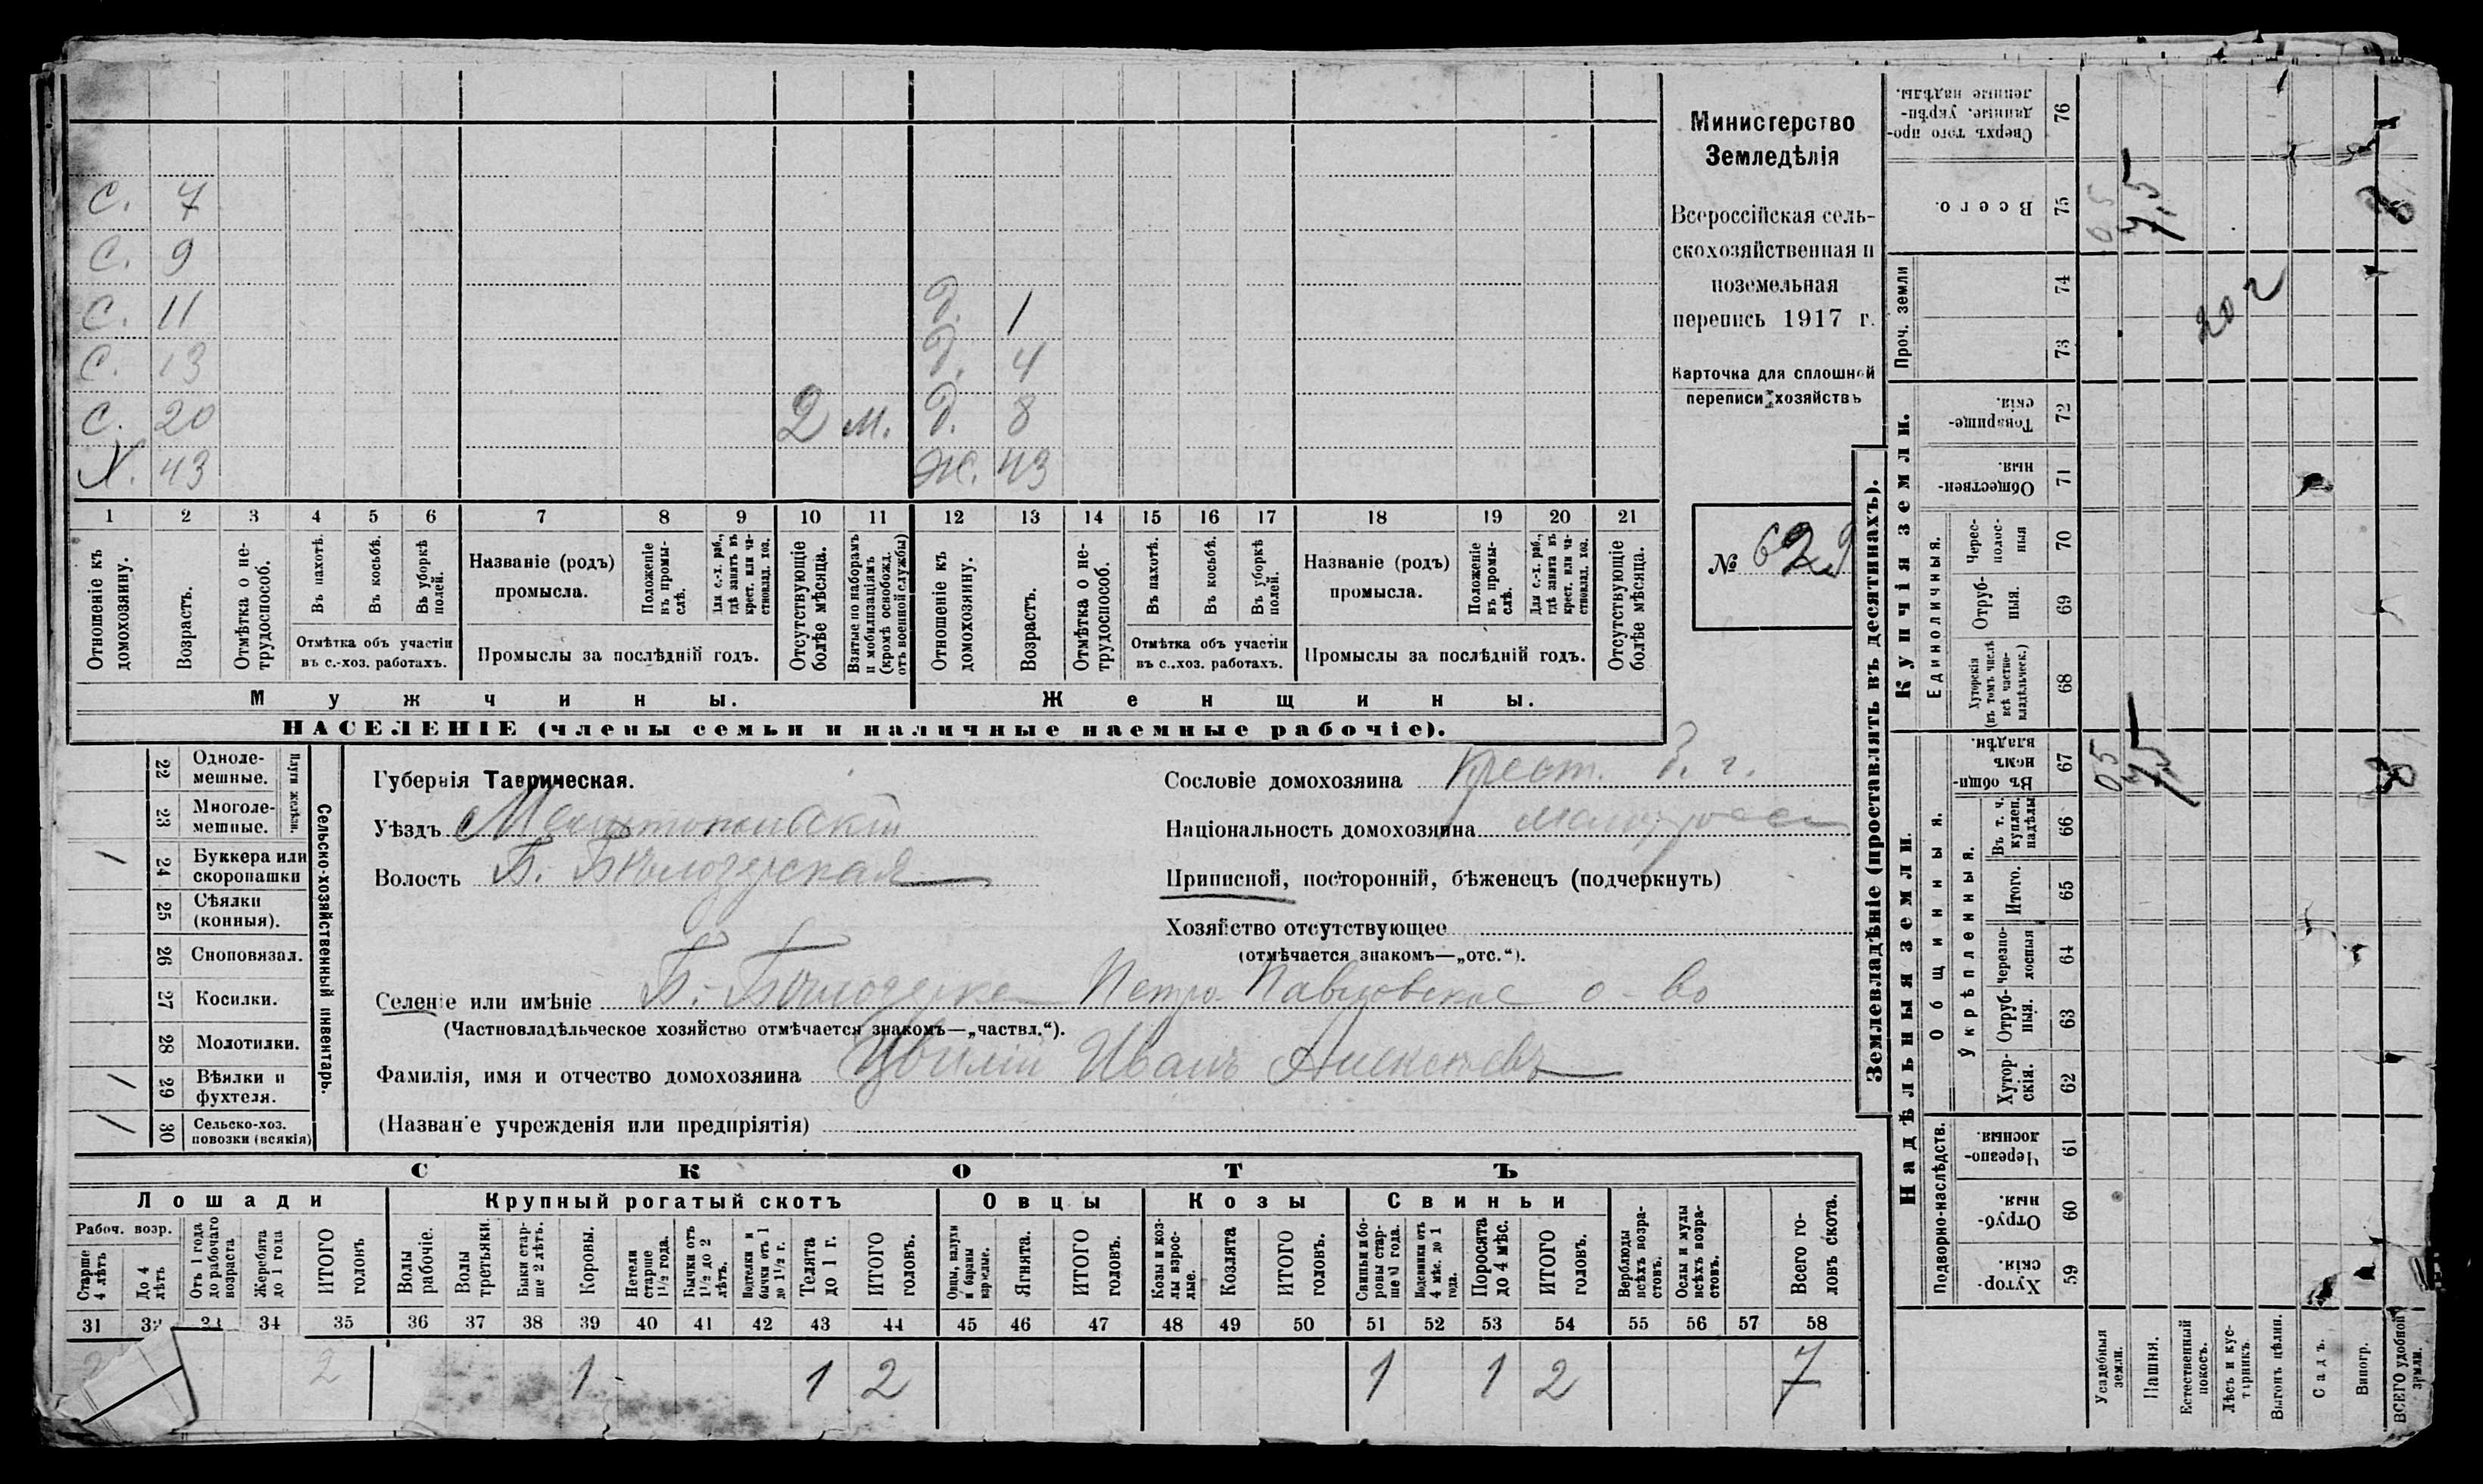 С. 7
С. 9
С. 11 Д. 1
С. 13 Д. 4
С. 20 2 м. Д. 8
Х. 43 Ж. 43
1 2 3 4 5 6 7 8 9 10 11 12 13 14 15 16 17 18 19 20 21
Отношеніе къ домохозяину.
Возрастъ.
Отмѣтка о не-трудоспособ.
Въ пахотѣ.
Въ косьбѣ.
Въ уборкѣ полей.
Отмѣтка объ участіи
въ с.-хоз. работахъ.
Названіе (родъ)
промысла.
Положеніе въ промы-слѣ.
Для с.-х. раб., гдѣ занятъ въ крест. или ча-стновлад. хоз.
Промыслы за послѣдній годъ.
Отсутствующіе болѣе мѣсяца.
Взятые по наборамъ и мобилизаціямъ (кромѣ освобожд. отъ военной службы)
Отношеніе къ домохозяину.
Возрастъ.
Отмѣтка о не-трудоспособ.
Въ пахотѣ.
Въ косьбѣ.
Въ уборкѣ полей.
Отмѣтка объ участіи
въ с..хоз. работахъ.
Названіе (родъ)
промысла.
Положеніе въ промы-слѣ.
Для с.-х. раб., гдѣ занята въ крест. или ча-стновлад. хоз.
Промыслы за послѣдній годъ.
Отсутствующіе болѣе мѣсяца.
Мужчины. Женщины.
НАСЕЛЕНІЕ (члены семьи и наличные наемные рабочіе).
Министерство
Земледѣлія
Всероссійская сель-
скохозяйственная и
поземельная
перепись 1917 г.
Карточка для сплошной
переписи хозяйствъ
№ 629
Сельско-хозяйственный инвентарь.
Плуги желѣзн.
22 Одноле-мешные.
23 Многоле-мешные.
/ 24 Буккера или скоропашки
25 Сѣялки (конныя).
26 Сноповязал.
27 Косилки.
28 Молотилки.
/ 29 Вѣялки и фухтеля.
/ 30 Сельско-хоз. повозки (всякія)
Губернія Таврическая.
Уѣздъ Мелитопольскій
Волость Б. Бѣлозерская
Сословіе домохозяина Крест.
Національность домохозяина малоросс
Приписной, посторонній, бѣженецъ (подчеркнуть)
Хозяйство отсутствующее
(отмѣчается знакомъ—„отс.“).
Селеніе или имѣніе Б.-Бѣлозерка Петро-Павловское о-во
(Частновладѣльческое хозяйство отмѣчается знакомъ—„частвл.“).
Фамилія, имя и отчество домохозяина Цвилій Иванъ Алексѣевъ
(Названіе учрежденія или предпріятія)
СКОТЪ
Лошади Крупный рогатый скотъ Овцы Козы Свиньи
Рабоч. возр.
Старше 4 лѣтъ
До 4 лѣтъ
Отъ 1 года до рабочаго возраста
Жеребята до 1 года
ИТОГО головъ
Волы рабочіе.
Волы третьяки.
Быки стар-ше 2 лѣтъ.
Коровы.
Нетели старше 1½ года.
Бычки отъ 1½ до 2 лѣтъ.
Подтелки и бычки отъ 1 до 1½ г.
Телята до 1 г.
ИТОГО головъ.
Овцы, валухи и бараны взрослые.
Ягнята.
ИТОГО головъ.
Козы и коз-лы взрос-лые.
Козлята
ИТОГО головъ.
Свиньи и бо-ровы стар-ше 1 года.
Подсвинки отъ 4 мѣс. до 1 года.
Поросята до 4 мѣс.
ИТОГО головъ.
Верблюды всѣхъ возра-стовъ.
Ослы и мулы всѣхъ возра-стовъ.
Всего го-ловъ скота.
31 32 34 35 36 37 38 39 40 41 42 43 44 45 46 47 48 49 50 51 52 53 54 55 56 57 58
2 2 1 1 2 1 1 2 7
Землевладѣніе (проставлять въ десятинахъ).
Купчія земли.
Надѣльныя земли.
Проч. земли
Единоличныя.
Общинныя.
Укрѣпленныя.
Подворно-наслѣдств.
76 Сверхъ того про-данные, укрѣп-ленные надѣлы.
75 Всего.
74
73
72 Товарище-скія.
71 Обществен-ныя.
70 Черес-полос-ныя
69 Отруб-ныя.
68 Хуторскія (въ томъ числѣ всѣ частно-владѣльческ.)
67 Въ общин-номъ владѣн.
66 Въ т. ч. куплен. надѣлы
65 Итого.
64 Черезпо-лосныя
63 Отруб-ныя.
62 Хутор-скія.
61 Черезпо-лосныя.
60 Отруб-ныя.
59 Хутор-скія.
Усадебныя земли.
Пашня.
Естественный покосъ.
Лѣсъ и кус-тарникъ.
Выгонъ цѣлин.
Садъ.
Виногр.
ВСЕГО удобной земли.
05 7,5 8
20 г
05 7,5 8